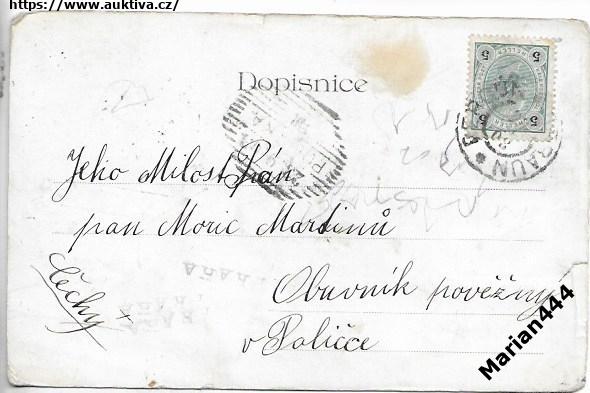 https://www.auktiva.cz/
Dopisnice
5 5
5 5
RAUN
Jeho Milost Pán,
pan Moric Martinů
Obuvník pověžný
v Poličce
Čechy
Marian444